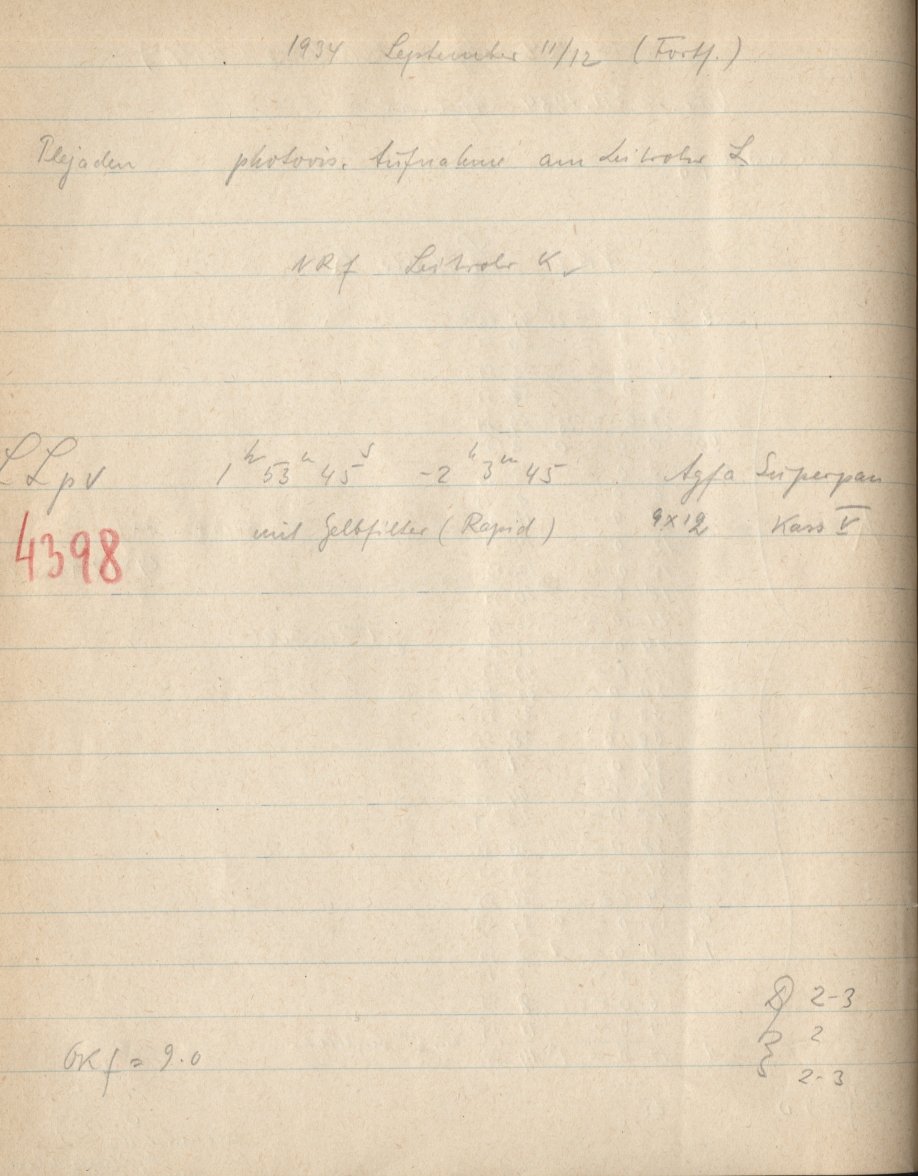 1934 September 11/12 (Fortf.)
Plejaden photovis. Aufnahme am Leitrohr L
NRf Leitrohr K
LLpv 1h 53m 45s -2h 3m 45 Agfa Superpan
mit Gelbfilter (Rapid) 9x12 Kass V
4398
2-3
2
OKf = 9.0
2-3